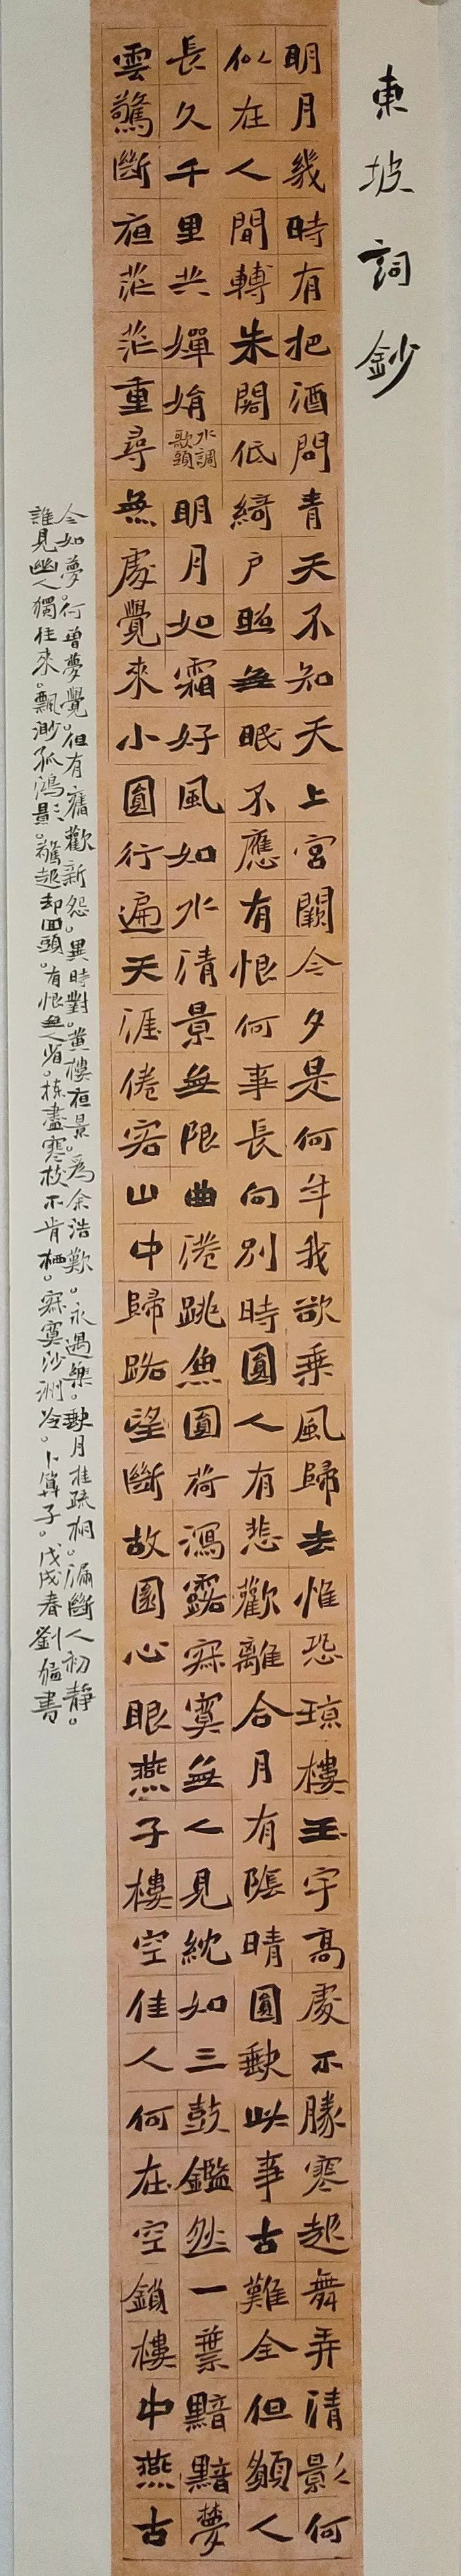 東坡詞鈔
明月幾時有把酒問青天不知天上宮闕今夕是何年我欲乘風歸去惟恐瓊樓玉宇高處不勝寒起舞弄清影何
似在人間轉朱閣低綺戶照無眠不應有恨何事長向別時圓人有悲歡離合月有陰晴圓缺此事古難全但願人
長久千里共嬋娟水調歌頭明月如霜好風如水清景無限曲港跳魚圓荷瀉露寂寞無人見紞如三鼓鏗然一葉黯黯夢
雲驚斷夜茫茫重尋無處覺來小園行遍天涯倦客山中歸路望斷故園心眼燕子樓空佳人何在空鎖樓中燕古
今如夢。何曾夢覺。但有舊歡新怨。異時對。黃樓夜景。為余浩歎。永遇樂。缺月挂疏桐。漏斷人初靜。
誰見幽人獨往來。飄渺孤鴻影。驚起却回頭。有恨無人省。揀盡寒枝不肯栖。寂寞沙洲冷。卜算子。戊戌春劉 書